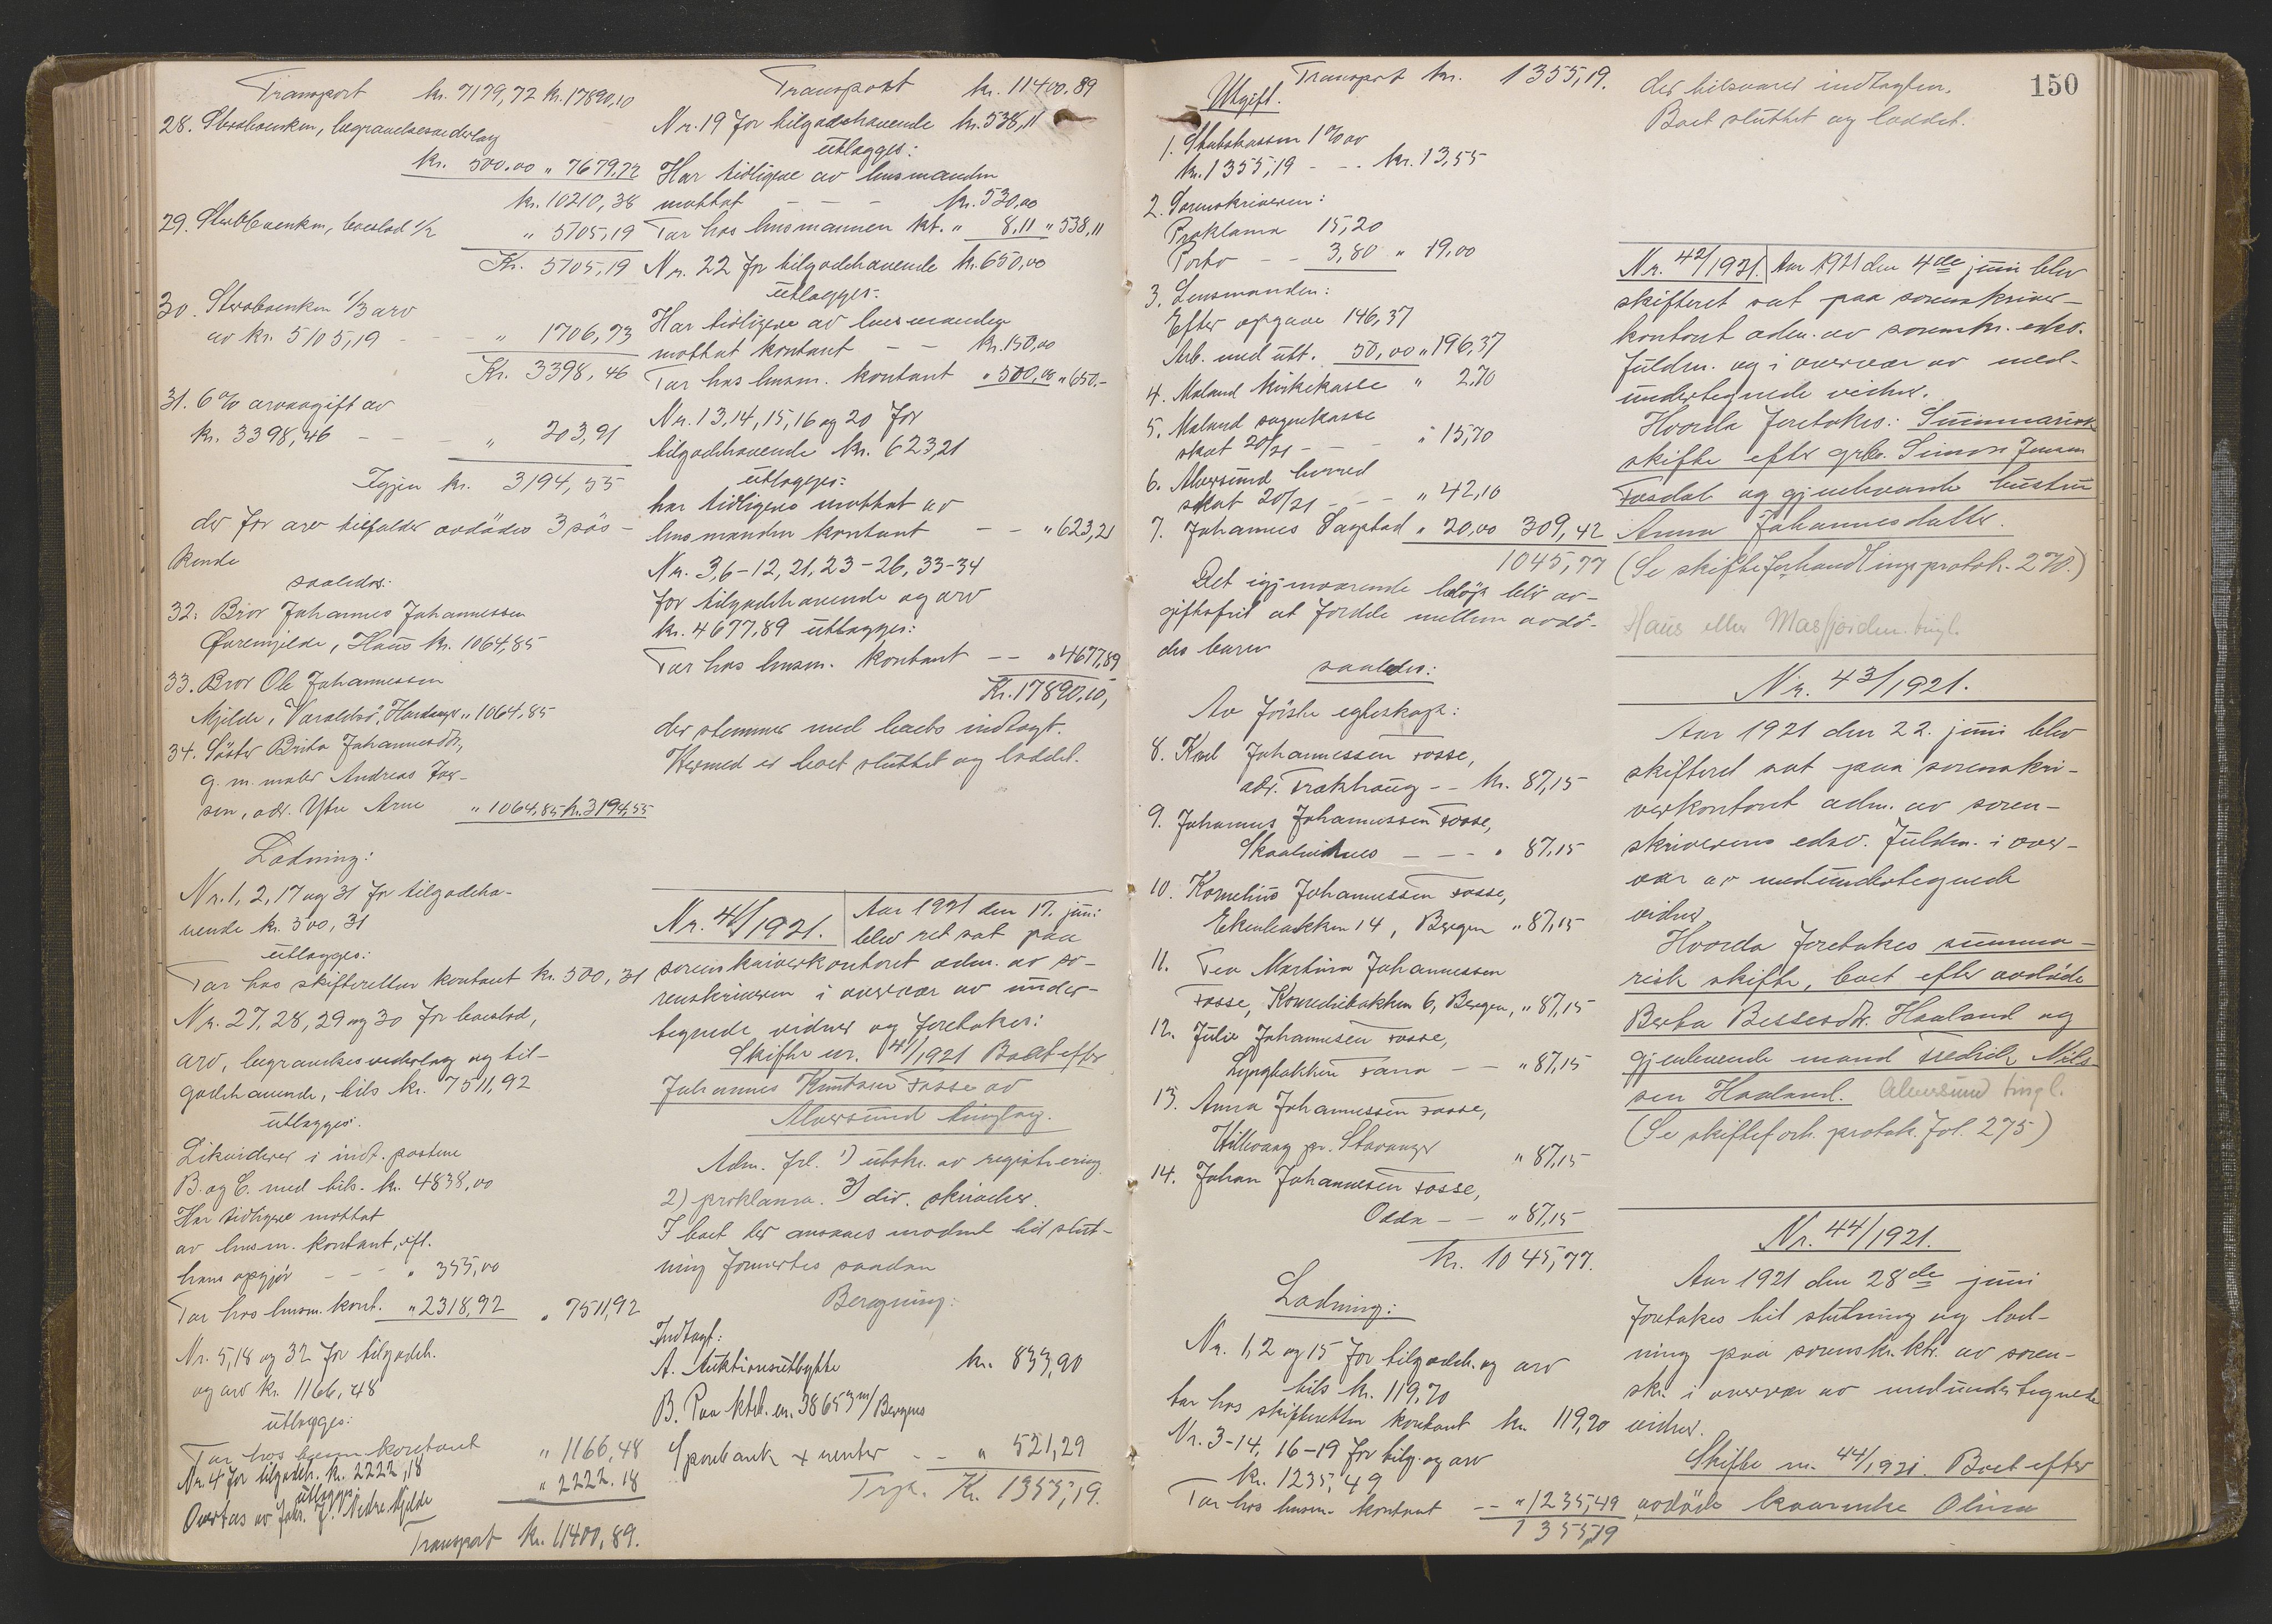 Transport kr. 7179,72 kr. 17890,10
28. Sterboenken, begravelsesvederlag
kr. 500.00 " 7679,72
kr. 10210,38
29. Sterboenken, boeslod 1/2
" 5105,19
Kr. 5105,19
30. Sterboenken 1/3 arv
av kr. 5105,19 - - " 1706,73
Kr. 3398,46
31. 6% arveavgift av
kr. 3398,46 - - - " 203,91
Igjen kr. 3194,55
der for arv tilfalder avdødes 3 søs-
kende
saaledes:
32. Bror Johannes Johannessen
Øvremjelde, Haus kr. 1064,85
33. Bror Ole Johannessen
Mjelde, Varaldsø, Hardanger " 1064,85
34. Søster Brita Johannesdtr,
g. m. maler Andreas
sen, adr. Ytre Arne " 1064,85 kr. 3194,55
Lodning:
Nr. 1, 2, 17 og 31 for tilgodeha-
vende kr. 500,31
utlægges:
Tar hos skifteretten kontant kr. 500,31
Nr. 27, 28, 29 og 30 for boeslod,
arv, begravelsesvederlag og til-
godehavende, tils kr. 7511,92
utlægges:
Likviderer i indt. postene
B. og C. med tils. kr. 4838,00
Har tidligere mottat
av lensm. kontant, eft.
hans opgjør - - - " 355,00
Tar hos lensm. kont. " 2318,92 " 7511,92
Nr. 5, 18 og 32 for tilgodeh.
og arv kr. 1166,48
utlægges:
Tar hos lensm. kontant " 1166,48
Nr. 4 for tilgodeh. kr. 2222,18
utlægges:
Overtas av Johs. J. Nedre Mjelde " 2222.18
Transport kr. 11400,89.
Transport kr. 11400.89
Nr. 19 for tilgodehavende kr. 538,11
utlægges:
Har tidligere av lensmanden
mottat - - - kr. 530,00
Tar hos lensmannen kt. " 8,11 " 538,11
Nr. 22 for tilgodehavende kr. 650,00
utlægges:
Har tidligere av lensmanden
mottat kontant - - kr. 150,00
Tar hos lensm. kontant " 500,00 " 650.-
Nr. 13, 14, 15, 16 og 20 for
tilgodehavende kr. 623,21
utlægges:
har tidligere mottat av
lensmanden kontant - - " 623,21
Nr. 3, 6-12, 21, 23-26, 33-34
for tilgodehavende og arv
kr. 4677,89 utlægges:
Tar hos lensm. kontant -- " 4677,89
Kr. 17890,10,
der stemmer med boets indtægt.
Hermed er boet sluttet og loddet.
Nr. 41/1921. Aar 1921 den 17. juni
blev ret sat paa
sorenskriverkontoret adm. av so-
renskriveren i overvær av under-
tegnede vidner og foretokes:
Skifte nr. 41/1921 Boet efter
Johannes Knutsen Fosse av
Alversund tinglag.
Adm. frl. 1) utskr. av registrering.
2) proklama. 3) div. skriveler.
I boet der ansaaes modent til slut-
ning forfattes saadan
Beregning:
Indtægt:
A. Auktionsutbytte kr. 833,90
B. Paa ktrb. nr. 38653 m/ Bergens
Sparebank + renter - - " 521,29
Trsp. Kr. 1355,19.
150
Transport kr. 1355,19.
Utgift.
1. Statskassen 1% av
kr. 1355,19 - - - kr. 13,55
2. Sorenskriveren:
Proklama 15,20
Porto - - 3,80 " 19,00
3. Lensmanden:
Efter opgave 146,37
Arb. med utt. 50,00 " 196,37
4. Meland kirkekasse " 2,70
5. Meland sognekasse
skat 20/21 - - - " 15,70
6. Alversund herred
skat 20/21 - - - " 42,10
7. Johannes Sagstad " 20,00 309,42
1045,77
Det igjenværende beløp blir av-
giftsfrit at fordele mellem avdø-
des barn
saaledes:
Av første egteskap:
8. Karl Johannessen Fosse,
adr. Trækhaug - - kr. 87,15
9. Johannes Johannessen Fosse,
Skaalviknes - - - " 87,15
10. Kornelius Johannessen Fosse,
Ekrebakken 14, Bergen " 87,15
11. Tea Martina Johannessen
Fosse, Komediebakken 6, Bergen, " 87,15
12. Julie Johannesen Fosse,
Lyngbakken Fana - - " 87,15
13. Anna Johannessen Fosse,
Hillevaag pr. Stavanger " 87,15
14. Johan Johannesen Fosse,
Odda - - " 87,15
kr. 1045,77.
Lodning:
Nr. 1, 2 og 15 for tilgodeh. og arv
tils kr. 119,70
tar hos skifteretten kontant kr. 119,70
Nr. 3-14, 16-19 for tilg. og arv
kr. 1235,49
Tar hos lensm. kontant -- " 1235,49
1355,19
der tilsvarer indtægten.
Boet sluttet og loddet.
Nr. 42/1921. Aar 1921 den 4de juni blev
skifteret sat paa sorenskriver-
kontoret adm. av sorenskr. edsv.
fuldm. og i overvær av med-
undertegnede vidner.
Hvorda foretokes: Summarisk
skifte efter grbr. Simon Jensen
Fosdal og gjenlevende hustru
Anna Johannesdatter.
(Se skifteforhandlingsprotok. 270.)
Haus eller Masfjorden tingl.
Nr. 43/1921.
Aar 1921 den 22. juni blev
skifteret sat paa sorenskri-
verkontoret adm. av soren-
skriverens edsv. fuldm. i over-
vær av medundertegnede
vidner.
Hvorda foretokes summa-
risk skifte, boet efter avdøde
Berta Bessesdtr. Haaland og
gjenlevende mand Fredrik Nils-
sen Haaland. Alversund tingl.
(Se skifteforh. protok. fol. 275)
Nr. 44/1921.
Aar 1921 den 28de juni
foretokes til slutning og lod-
ning paa sorenskr. ktr. av soren-
skr. i overvær av medundertegnede
vidner.
Skifte nr. 44/1921. Boet efter
avdøde kaarenke Olina